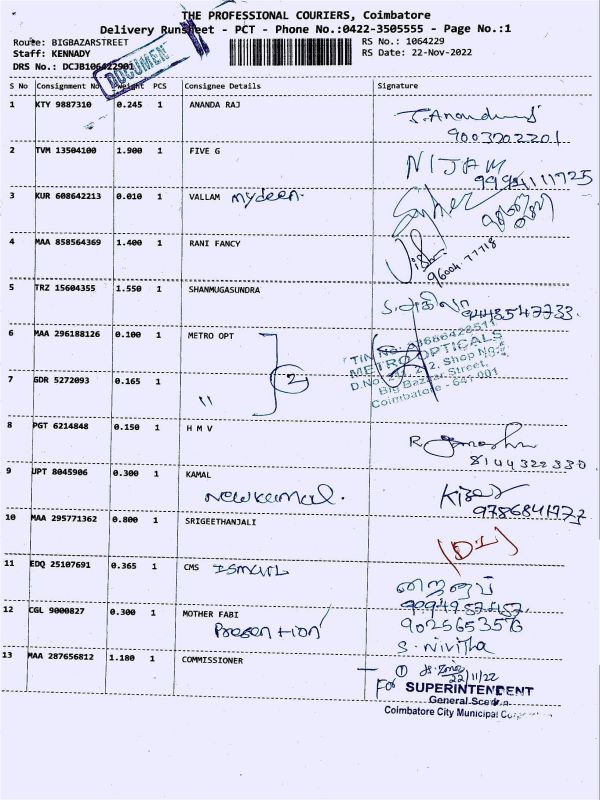 THE PROFESSIONAL COURIERS, Coimbatore
Delivery Runsheet - PCT - Phone No.:0422-3505555 - Page No.:1
Route: BIGBAZARSTREET RS No.: 1064229
Staff: KENNADY RS Date: 22-Nov-2022
DRS No.: DCJB106422901
DOCUMEN
S No Consignment No Weight PCS Consignee Details Signature
1 KTY 9887310 0.245 1 ANANDA RAJ
9003202201
2 TVM 13504100 1.900 1 FIVE G NIJAM
3 KUR 608642213 0.010 1 VALLAM mydeen
4 MAA 858564369 1.400 1 RANI FANCY
96004 77718
5 TRZ 15604355 1.550 1 SHANMUGASUNDRA
9448547733
6 MAA 296188126 0.100 1 METRO OPT
METRO OPTICALS
Big Bazaar Street,
Coimbatore - 641 001
7 GDR 5272093 0.165 1 " 2
8 PGT 6214848 0.150 1 H M V
8144322330
9 UPT 8045906 0.300 1 KAMAL
New kamal.
10 MAA 295771362 0.800 1 SRIGEETHANJALI
(D.L)
11 EDQ 25107691 0.365 1 CMS ISMAIL
12 CGL 9000827 0.300 1 MOTHER FABI
9025653576
S. Nivitha
13 MAA 287656812 1.180 1 COMMISSIONER
22/11/22
For SUPERINTENDENT
General Section
Coimbatore City Municipal Corporation